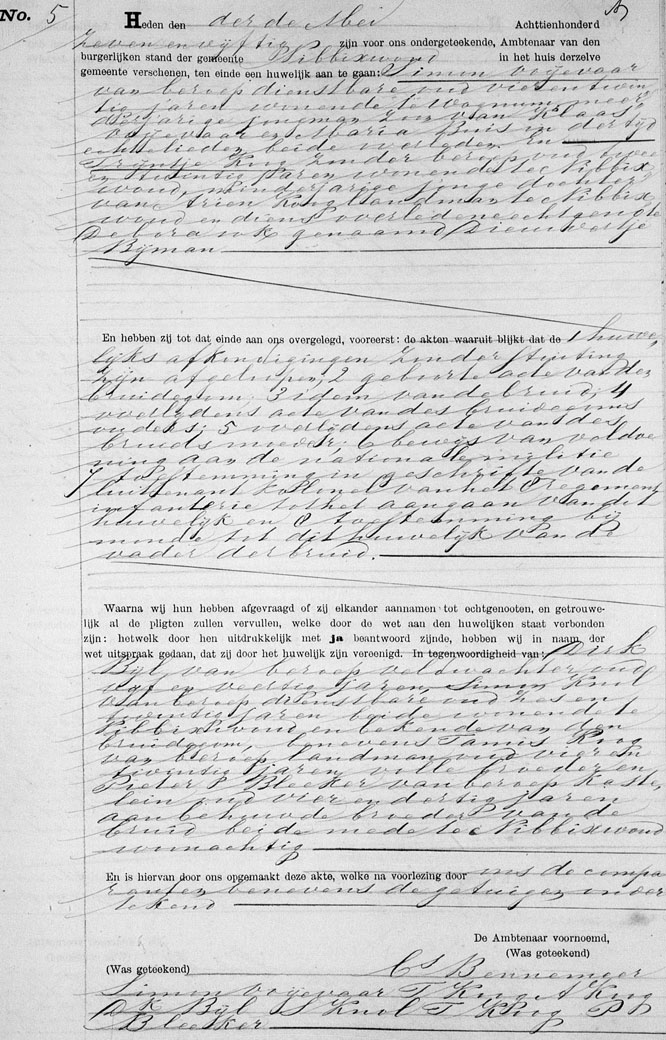 No. 5
Heden den derde Mei Achttienhonderd
Zeven en vijftig zijn voor ons ondergeteekende, Ambtenaar van den
burgerlijken stand der gemeente Nibbixwoud in het huis derzelve
gemeente verschenen, ten einde een huwelijk aan te gaan: Simon Vijzelaar
van beroep dienstbare oud vier en twin
tig jaren wonende te Wognum, meer
derjarige jongman zoon van Klaas
en Maria Buis in der tijd
echtelieden beide overleden. En
Trijntje Koog zonder beroep oud twee
en twintig jaren wonende te Nibbix
woud, minderjarige jonge dochter
van Arien Koog landman te Nibbix
woud en diens overledene echtgenote
Debora ook genaamd Dieuwertje
Bijman
En hebben zij tot dat einde aan ons overgelegd, vooreerst: de akten waaruit blijkt dat de 1 huwe
lijks afkondigingen zonder stuiting
zijn afgelopen; 2 geboorte acte van den
bruidegom; 3 idem van de bruid; 4
overlydens acte van des bruidegoms
ouders; 5 overlydens acte van des
bruids moeder; 6 bewijs van voldoe
ning aan de nationale militie
7 toestemming in geschrifte van de
luitenant Kollonel van het 8 regement
infanterie tot het aangaan van dit
huwelijk en 8 toestemming bij
monde tot dit huwelijk van de
vader der bruid.
Waarna wij hun hebben afgevraagd of zij elkander aannamen tot echtgenooten, en getrouwe-
lijk al de pligten zullen vervullen, welke door de wet aan den huwelijken staat verbonden
zijn: hetwelk door hen uitdrukkelijk met ja beantwoord zijnde, hebben wij in naam der
wet uitspraak gedaan, dat zij door het huwelijk zijn vereenigd. In tegenwoordigheid van: Dirk
Bijl van beroep veldwachter oud
vijf en veertig jaren, Simon Knol
van beroep dienstbare oud zes en
twintig jaren beide wonende te
Nibbixwoud en bekende van den
bruidegom, benevens Tamis Koog
van beroep landman oud vier en
twintig jaren volle broeder en
Pieter P Bleeker van beroep Kaste
lein oud vier en dertig jaren
aanbehuwde broeder van de
bruid beide mede te Nibbixwoud
woonachtig
En is hiervan door ons opgemaakt deze akte, welke na voorlezing door ons de compa
ranten benevens de getuigen onder
tekend
De Ambtenaar voornoemd,
(Was geteekend)
(Was geteekend) Cs Bennemeer
Simon T Koog A Koog
Dk Bijl S Knol T Koog P P
Bleeker